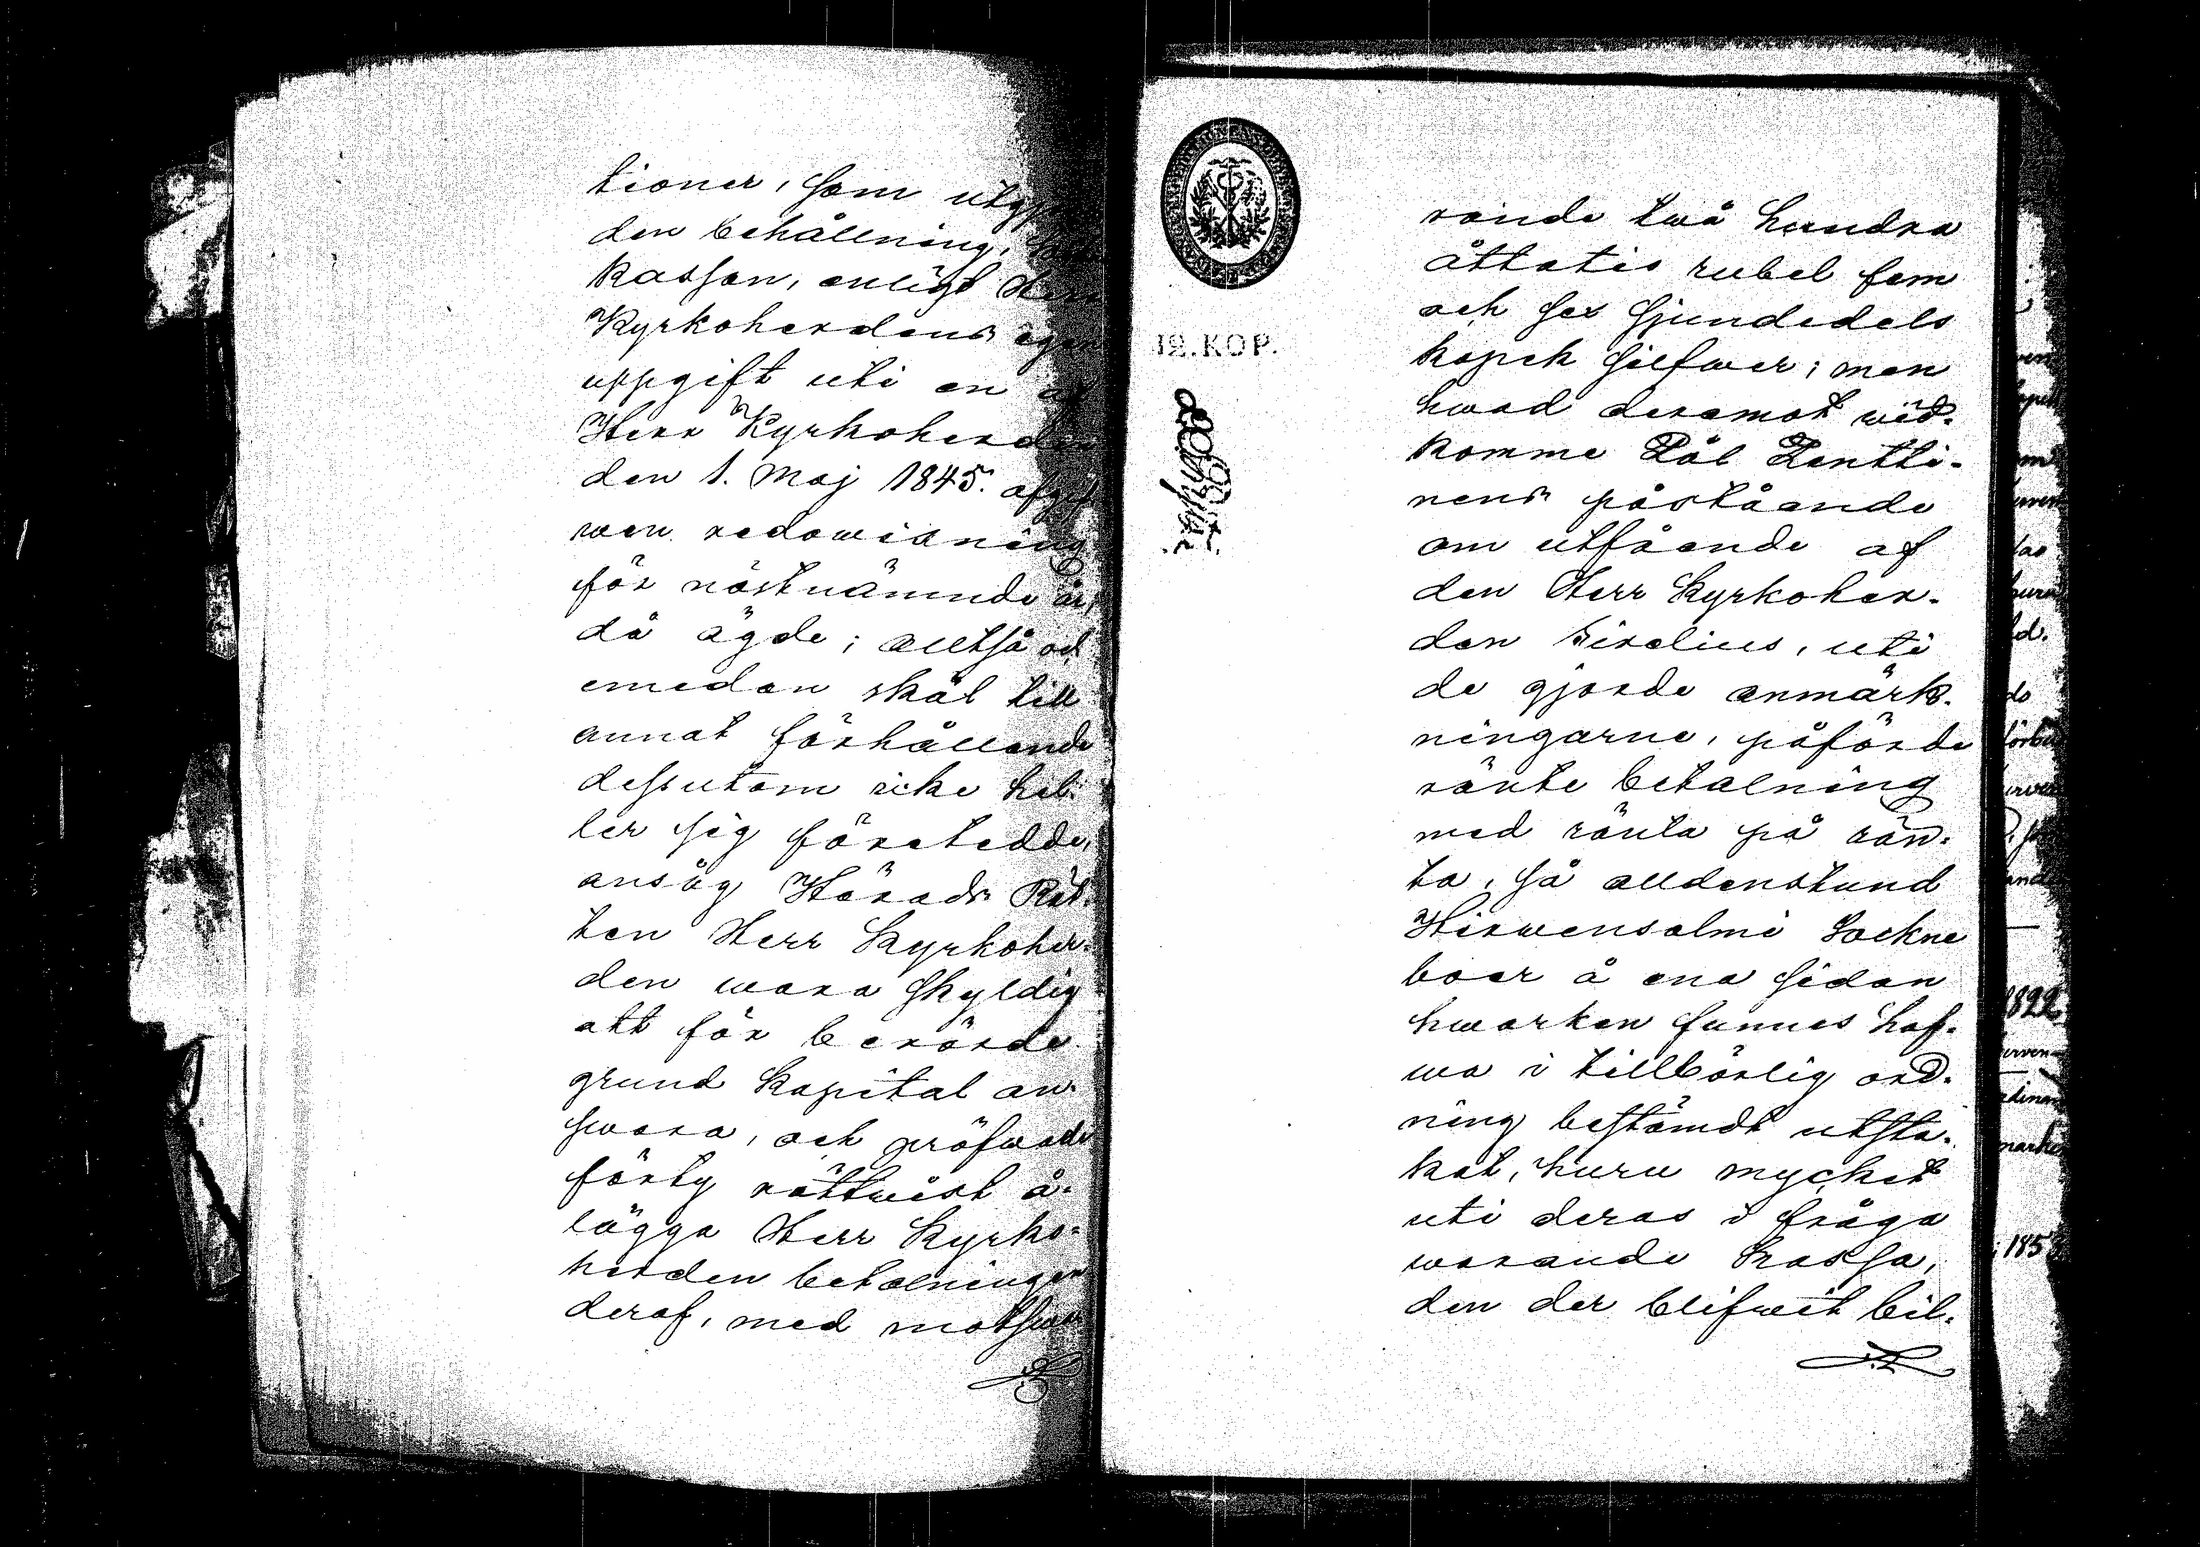 tioner, som
den behållning,
kassan, enligt Herr
Kyrkoherdens egen
uppgift uti en af
Herr Kyrkoherden
den 1. Maj 1845. afgif
wen redowisning
för nästnämnde år,
då ägde; alltså och
emedan skäl till
annat förhållande
dessutom icke hel-
ler sig företedde,
ansåg Härads Rät-
ten Herr Kyrkoher-
den wara skyldig
att för berörde
grund kapital an-
swara, och pröfwade
förty rättwist å-
lägga Herr Kyrko-
herden betalningen
deraf, med motswa
12. KOP.
rande twå hundra
åttatis rubel fem
och sex sjundedels
kopek silfwer; men
hwad deremot wid-
komme Pål Lentti-
nens påstående
om utfående af
den Herr Kyrkoher-
den Sirelius, uti
de gjorde anmärk-
ningarne, påförde
ränte betalning
med ränta på rän-
ta, så alldenstund
Hirwensalmi Sockne
boer å ena sidan
hwarken funnes haf-
wa i tillbörlig ord-
ning bestämdt utsta-
kat, huru mycket
uti deras i fråga
warande kassa,
den der blifwit bil-